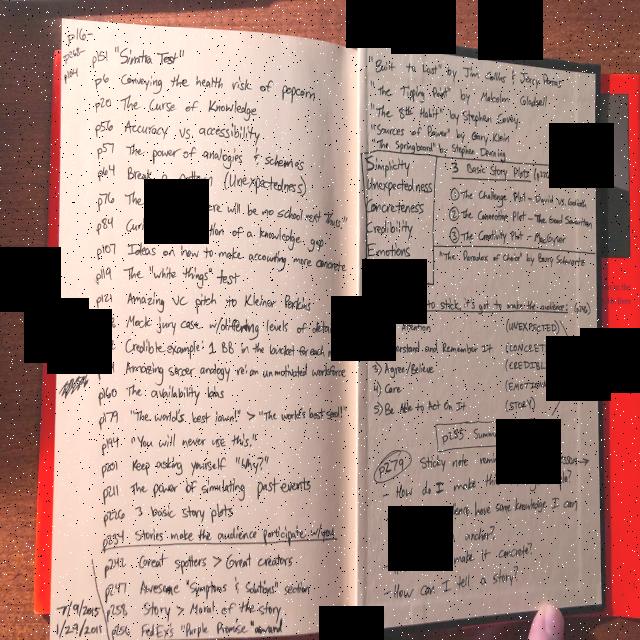 p16-
p151 "Sinatra Test"
p6 Conveying the health risk of popcorn
p20 The Curse of Knowledge
p56 Accuracy vs. accessibility
p57 The power of analogies & schemas
p64 Break (Unexpectedness)
p76 The ere will be no school next Thurs."
p84 Cur tion of a knowledge gap
p107 Ideas on how to make accounting more concrete
p119 The "white things" test
p121 Amazing VC pitch to Kleiner Perkins
Mock jury case w/differing levels of detail
Credible example: 1 BB in the bucket for each
Amazing soccer analogy re: an unmotivated workforce
p160 The availability bias
p179 "The world's best lawn!" > "The world's best seed!"
p194 "You will never use this."
p201 Keep asking yourself "Why?"
p211 The power of simulating past events
p226 3 basic story plots
p234 Stories make the audience participate w/you
p242 Great spotters > Great creators
p247 Awesome "Symptoms & Solutions" section
p258 Story > Moral of the story
FedEx's "Purple Promise" award
7/9/2015
1/29/2015
"Built to Last" by Jim Collins & Jerry Porras
"The Tipping Point" by Malcolm Gladwell
"The 8th Habit" by Stephen Covey
"Sources of Power" by Gary Klein
"The Springboard" by Stephen Denning
Simplicity
Unexpectedness
Concreteness
Credibility
Emotions
3 Basic Story Plots
① The Challenge Plot - David vs. Goliath
② The Connection Plot - The Good Samaritan
③ The Creativity Plot - MacGyver
"The Paradox of Choice" by Barry Schwartz
to stick, it's got to make the audience:
Attention (UNEXPECTED)
erstand and Remember It (CONCRET
3) Agree/Believe (CREDIBL
4) Care (EMOTION
5) Be Able to Act On It (STORY)
p255 Summ
p279 Sticky note remin
- How do I make th
ence have some knowledge I can
anchor?
make it concrete?
- How can I tell a story?